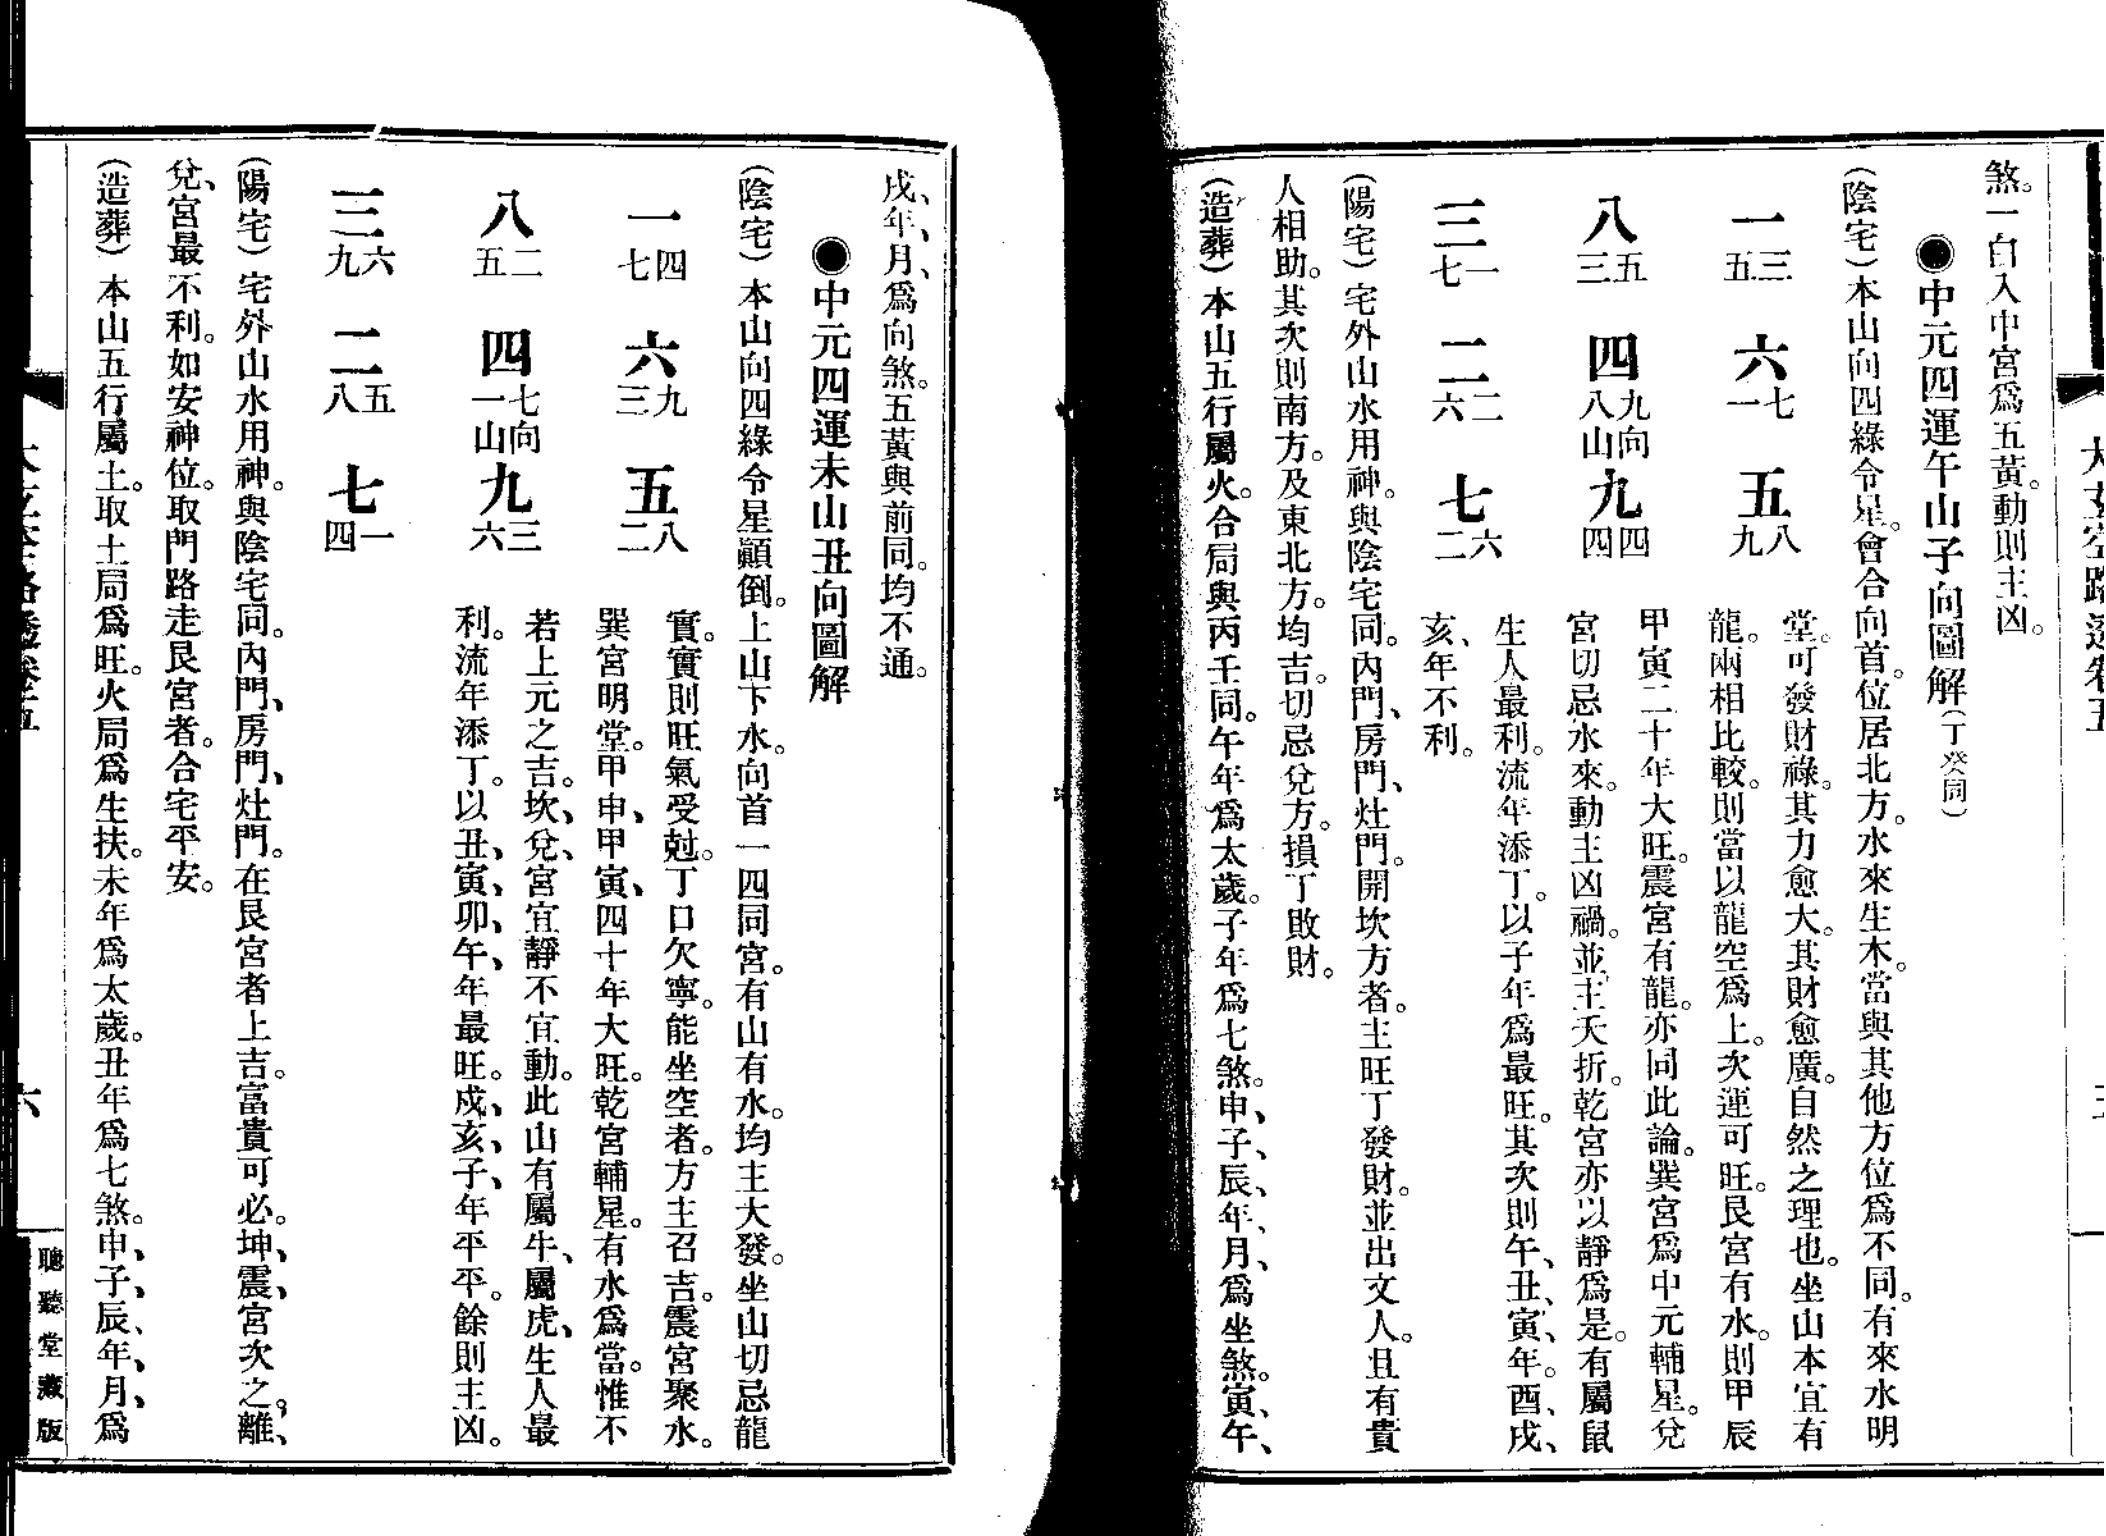 煞。一白入中宮爲五黃。動則主凶。
●中元四運午山子向圖解（丁癸同）
（陰宅）本山向四綠令星。會合向首。位居北方。水來生木。當與其他方位爲不同。有來水明
一 五三 六 一七 五 九八
八 三五 四 八山 九向 九 四四
三 七一 二 六二 七 二六
堂。可發財祿。其力愈大。其財愈廣。自然之理也。坐山本宜有
龍。兩相比較。則當以龍空爲上。次運可旺。艮宮有水。則甲辰
甲寅二十年大旺。震宮有龍。亦同此論。巽宮爲中元輔星。兌
宮切忌水來。動主凶禍。並主夭折。乾宮亦以靜爲是。有屬鼠
生人最利。流年添丁。以子年爲最旺。其次則午、丑、寅、年。酉、戌、
亥、年不利。
（陽宅）宅外山水用神。與陰宅同。內門、房門、灶門。開坎方者。主旺丁發財。並出文人。且有貴
人相助。其次則南方。及東北方。均吉。切忌兌方。損丁敗財。
（造葬）本山五行屬火。合局與丙壬同。午年爲太歲。子年爲七煞。申、子、辰、年、月、爲坐煞。寅、午、
戌、年、月、爲向煞。五黃與前同。均不通。
●中元四運未山丑向圖解
（陰宅）本山向四綠令星顚倒。上山下水。向首一四同宮。有山有水。均主大發。坐山切忌龍
一 七四 六 三九 五 二八
八 五二 四 一山 七向 九 六三
三 九六 二 八五 七 四一
實。實則旺氣受尅。丁口欠寧。能坐空者。方主召吉。震宮聚水。
巽宮明堂。甲申、甲寅、四十年大旺。乾宮輔星。有水爲當。惟不
若上元之吉。坎、兌、宮宜靜不宜動。此山有屬牛、屬虎、生人最
利。流年添丁。以丑、寅、卯、午、年最旺。戌、亥、子、年平平。餘則主凶。
（陽宅）宅外山水用神。與陰宅同。內門、房門、灶門。在艮宮者上吉。富貴可必。坤、震、宮次之。離、
兌、宮最不利。如安神位。取門路走艮宮者。合宅平安。
（造葬）本山五行屬土。取土局爲旺。火局爲生扶。未年爲太歲。丑年爲七煞。申、子、辰、年、月、爲
六
聰聽堂藏版